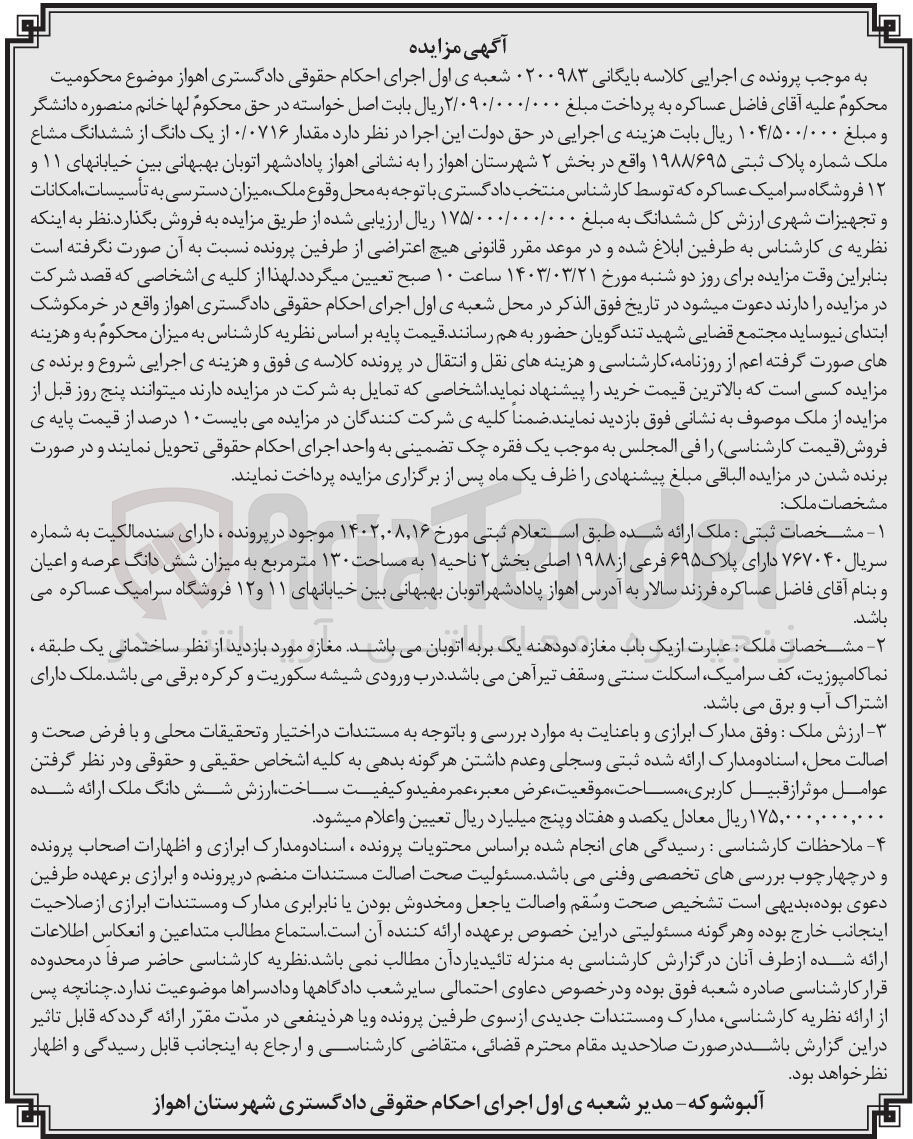 آگهی مزایده
به موجب پرونده ی اجرایی کلاسه بایگانی ۰۲۰۰۹۸۳ شعبه ی اول اجرای احکام حقوقی دادگستری اهواز موضوع محکومیت
محکومٌ علیه آقای فاضل عساکره به پرداخت مبلغ ۲/۰۹۰/۰۰۰/۰۰۰ریال بابت اصل خواسته در حق محکومٌ لها خانم منصوره دانشگر
و مبلغ ۱۰۴/۵۰۰/۰۰۰ ریال بابت هزینه ی اجرایی در حق دولت این اجرا در نظر دارد مقدار ۰/۰۷۱۶ از یک دانگ از ششدانگ مشاع
ملک شماره پلاک ثبتی ۱۹۸۸/۶۹۵ واقع در بخش ۲ شهرستان اهواز را به نشانی اهواز پادادشهر اتوبان بهبهانی بین خیابانهای ۱۱ و
۱۲ فروشگاه سرامیک عساکره که توسط کارشناس منتخب دادگستری با توجه به محل وقوع ملک،میزان دسترسی به تأسیسات،امکانات
و تجهیزات شهری ارزش کل ششدانگ به مبلغ ۱۷۵/۰۰۰/۰۰۰/۰۰۰ ریال ارزیابی شده از طریق مزایده به فروش بگذارد.نظر به اینکه
نظریه ی کارشناس به طرفین ابلاغ شده و در موعد مقرر قانونی هیچ اعتراضی از طرفین پرونده نسبت به آن صورت نگرفته است
بنابراین وقت مزایده برای روز دو شنبه مورخ ۱۴۰۳/۰۳/۲۱ ساعت ۱۰ صبح تعیین میگردد.لهذا از کلیه ی اشخاصی که قصد شرکت
در مزایده را دارند دعوت میشود در تاریخ فوق الذکر در محل شعبه ی اول اجرای احکام حقوقی دادگستری اهواز واقع در خرمکوشک
ابتدای نیوساید مجتمع قضایی شهید تندگویان حضور به هم رسانند.قیمت پایه بر اساس نظریه کارشناس به میزان محکومٌ به و هزینه
های صورت گرفته اعم از روزنامه،کارشناسی و هزینه های نقل و انتقال در پرونده کلاسه ی فوق و هزینه ی اجرایی شروع و برنده ی
مزایده کسی است که بالاترین قیمت خرید را پیشنهاد نماید.اشخاصی که تمایل به شرکت در مزایده دارند میتوانند پنج روز قبل از
مزایده از ملک موصوف به نشانی فوق بازدید نمایند.ضمناً کلیه ی شرکت کنندگان در مزایده می بایست۱۰ درصد از قیمت پایه ی
فروش(قیمت کارشناسی) را فی المجلس به موجب یک فقره چک تضمینی به واحد اجرای احکام حقوقی تحویل نمایند و در صورت
برنده شدن در مزایده الباقی مبلغ پیشنهادی را ظرف یک ماه پس از برگزاری مزایده پرداخت نمایند.
مشخصات ملک:
۱- مشخصات ثبتی : ملک ارائه شده طبق استعلام ثبتی مورخ ۱۴۰۲,۰۸,۱۶ موجود درپرونده ، دارای سندمالکیت به شماره
سریال۷۶۷۰۴۰ دارای پلاک۶۹۵ فرعی از۱۹۸۸ اصلی بخش۲ ناحیه۱ به مساحت۱۳۰ مترمربع به میزان شش دانگ عرصه و اعیان
و بنام آقای فاضل عساکره فرزند سالار به آدرس اهواز پادادشهراتوبان بهبهانی بین خیابانهای ۱۱ و۱۲ فروشگاه سرامیک عساکره می
باشد.
۲- مشخصات ملک : عبارت ازیک باب مغازه دودهنه یک بربه اتوبان می باشد. مغازه مورد بازدید از نظر ساختمانی یک طبقه ،
نماکامپوزیت، کف سرامیک، اسکلت سنتی وسقف تیرآهن می باشد.درب ورودی شیشه سکوریت و کرکره برقی می باشد.ملک دارای
اشتراک آب و برق می باشد.
۳- ارزش ملک : وفق مدارک ابرازی و باعنایت به موارد بررسی و باتوجه به مستندات دراختیار وتحقیقات محلی و با فرض صحت و
اصالت محل، اسنادومدارک ارائه شده ثبتی وسجلی وعدم داشتن هرگونه بدهی به کلیه اشخاص حقیقی و حقوقی ودر نظر گرفتن
عوامل موثرازقبیل کاربری،مساحت،موقعیت،عرض معبر،عمرمفیدوکیفیت ساخت،ارزش شش دانگ ملک ارائه شده
۱۷۵,۰۰۰,۰۰۰,۰۰۰ریال معادل یکصد و هفتاد وپنج میلیارد ریال تعیین واعلام میشود.
۴- ملاحظات کارشناسی : رسیدگی های انجام شده براساس محتویات پرونده ، اسنادومدارک ابرازی و اظهارات اصحاب پرونده
و درچهارچوب بررسی های تخصصی وفنی می باشد.مسئولیت صحت اصالت مستندات منضم درپرونده و ابرازی برعهده طرفین
دعوی بوده،بدیهی است تشخیص صحت وسُقم واصالت یاجعل ومخدوش بودن یا نابرابری مدارک ومستندات ابرازی ازصلاحیت
اینجانب خارج بوده وهرگونه مسئولیتی دراین خصوص برعهده ارائه کننده آن است.استماع مطالب متداعین و انعکاس اطلاعات
ارائه شده ازطرف آنان درگزارش کارشناسی به منزله تائیدیاردآن مطالب نمی باشد.نظریه کارشناسی حاضر صرفاً درمحدوده
قرارکارشناسی صادره شعبه فوق بوده ودرخصوص دعاوی احتمالی سایرشعب دادگاهها ودادسراها موضوعیت ندارد.چنانچه پس
از ارائه نظریه کارشناسی، مدارک ومستندات جدیدی ازسوی طرفین پرونده ویا هرذینفعی در مدّت مقرّر ارائه گرددکه قابل تاثیر
دراین گزارش باشددرصورت صلاحدید مقام محترم قضائی، متقاضی کارشناسی و ارجاع به اینجانب قابل رسیدگی و اظهار
نظرخواهد بود.
آلبوشوکه- مدیر شعبه ی اول اجرای احکام حقوقی دادگستری شهرستان اهواز
AriaTender